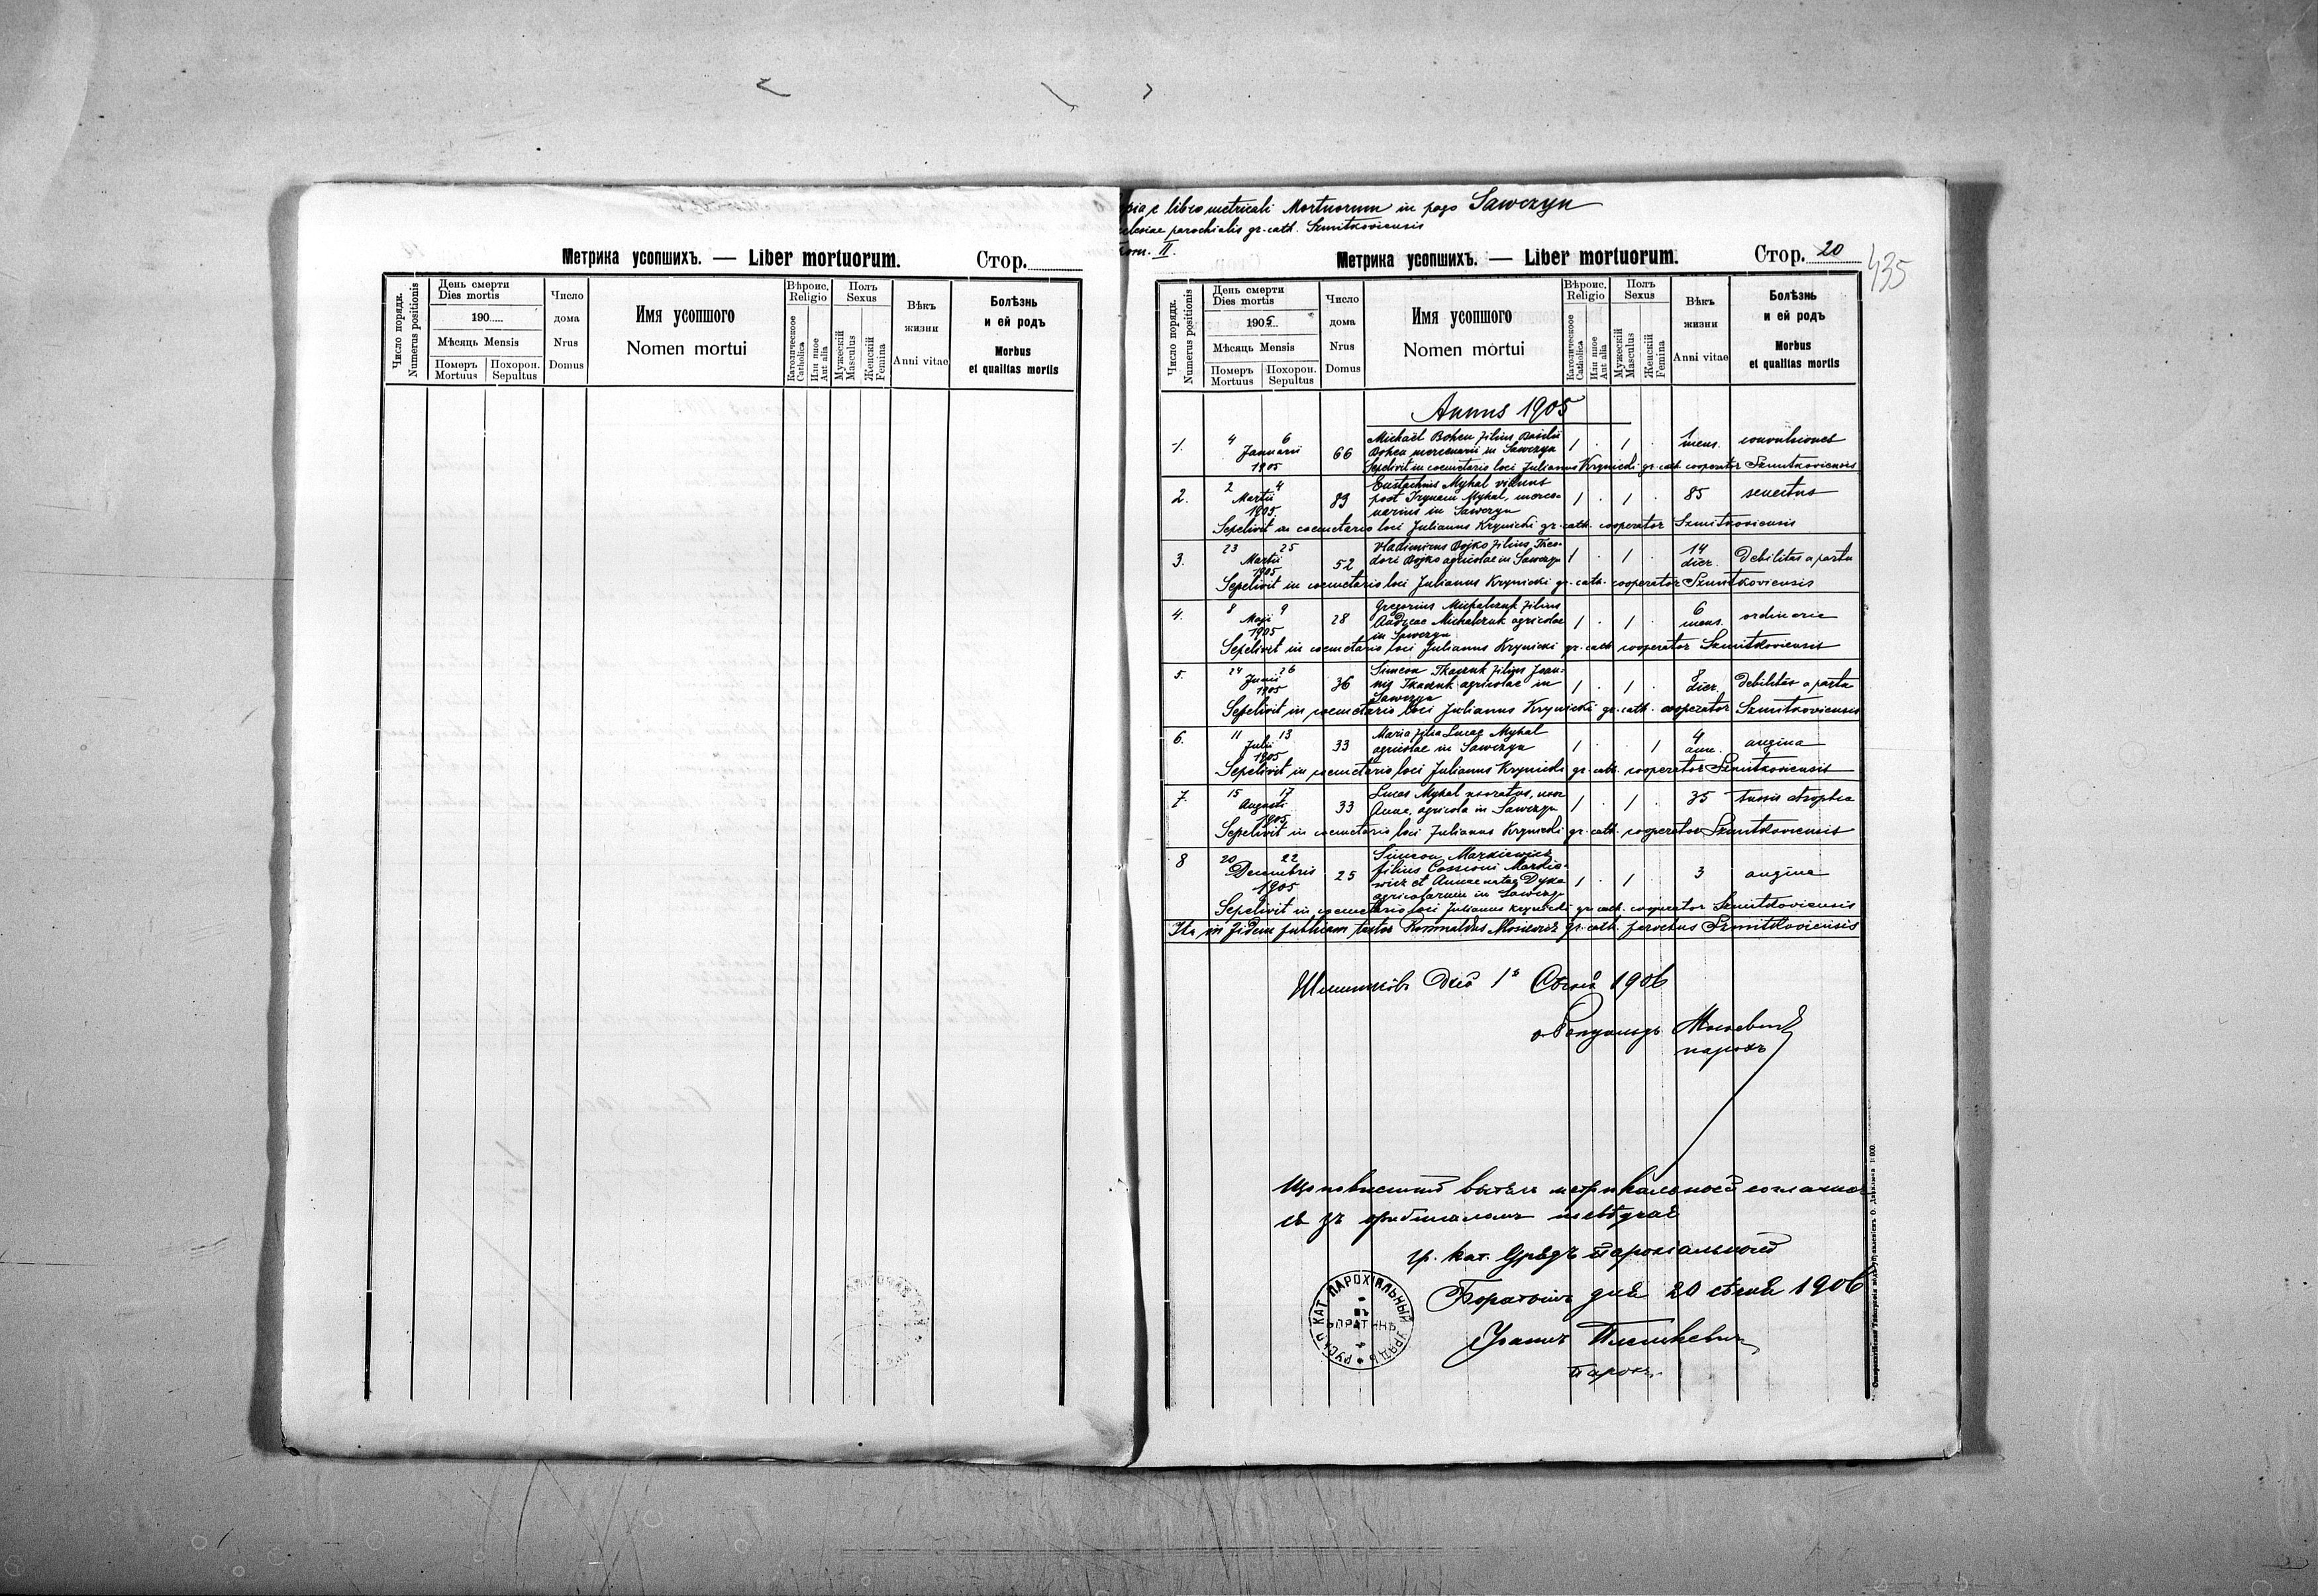 Метрика усопшихъ. — Liber mortuorum.
Стор.
Число порядк.
Numerus positionis
День смерти
Dies mortis
190
Мѣсяць Mensis
Померъ
Mortuus
Похорон.
Sepultus
Число
дома
Nrus
Domus
Имя усопшого
Nomen mortui
Вѣроис.
Religio
Католическое
Catholica
Или иное
Aut alia
Полъ
Sexus
Мужескій
Masculus
Женскій
Femina
Вѣкъ
жизни
Anni vitae
Болѣзнь
и ей родъ
Morbus
et qualitas mortis
pia e libro metricali Mortuorum in pago Sawczyn
clesiae parochialis gr. cath. Szmitkoviensis
Tom. II.
Метрика усопшихъ. — Liber mortuorum.
Стор. 20
435
Число порядк.
Numerus positionis
День смерти
Dies mortis
1905
Мѣсяць Mensis
Померъ
Mortuus
Похорон.
Sepultus
Число
дома
Nrus
Domus
Имя усопшого
Nomen mortui
Вѣроис.
Religio
Католическое
Catholica
Или иное
Aut alia
Полъ
Sexus
Мужескій
Masculus
Женскій
Femina
Вѣкъ
жизни
Anni vitae
Болѣзнь
и ей родъ
Morbus
et qualitas mortis
Annus 1905
1. 4 6 Januarii 1905 66 Michaël Bohen filius Basilii
Bohen mercenarii in Sawczyn 1 . 1 . 1 mens. convulsiones
Sepelivit in coemetario loci Julianus Krynicki gr. cath. cooperator Szmitkoviensis
2. 2 4 Martii 1905 89 Eustachius Myhal viduus
post Irynam Myhal, merce-
narius in Sawczyn 1 . 1 . 85 senectus
Sepelivit in coemetario loci Julianus Krynicki gr. cath. cooperator Szmitkoviensis
3. 23 25 Martii 1905 52 Vladimirus Bojko filius Theo-
dori Bojko agricolae in Sawczyn 1 . 1 . 14 dier. Debilitas a partu
Sepelivit in coemetario loci Julianus Krynicki gr. cath. cooperator Szmitkoviensis
4. 8 9 Maji 1905 28 Gregorius Michalczuk filius
Andreae Michalczuk agricolae
in Sawczyn 1 . 1 . 6 mens. ordinarie
Sepelivit in coemetario loci Julianus Krynicki gr. cath. cooperator Szmitkoviensis
5. 24 26 Junii 1905 36 Simeon Tkaczuk filius Joan-
nis Tkaczuk agricolae in
Sawczyn 1 . 1 . 8 dier. Debilitas a partu
Sepelivit in coemetario loci Julianus Krynicki gr. cath. cooperator Szmitkoviensis
6. 11 13 Julii 1905 33 Maria filia Lucae Myhal
agricolae in Sawczyn 1 . . 1 4 ann. angina
Sepelivit in coemetario loci Julianus Krynicki gr. cath. cooperator Szmitkoviensis
7. 15 17 Augusti 1905 33 Lucas Myhal uxoratus, uxor
Anna, agricola in Sawczyn 1 . 1 . 35 tussis
Sepelivit in coemetario loci Julianus Krynicki gr. cath. cooperator Szmitkoviensis
8 20 22 Decembris 1905 25 Simeon Markiewicz
filius Markie-
wicz et Annae natae Dyka
agricolarum in Sawczyn 1 . 1 . 3 angina
Sepelivit in coemetario loci Julianus Krynicki gr. cath. cooperator Szmitkoviensis
Ita in fidem publicam testor Romualdus Mosiewicz gr. cath. parochus Szmitkoviensis
Шмитковъ Дня 1 Січня 1906
о Ромуальдъ Мосевич
парохъ
ся зъ
гр. кат. Урядъ парохіальный
Боратинъ дня 20 січня 1906
парохъ
РУСК. КАТ. ПАРОХІАЛЬНЫЙ УРЯДЪ
БОРАТИНЪ